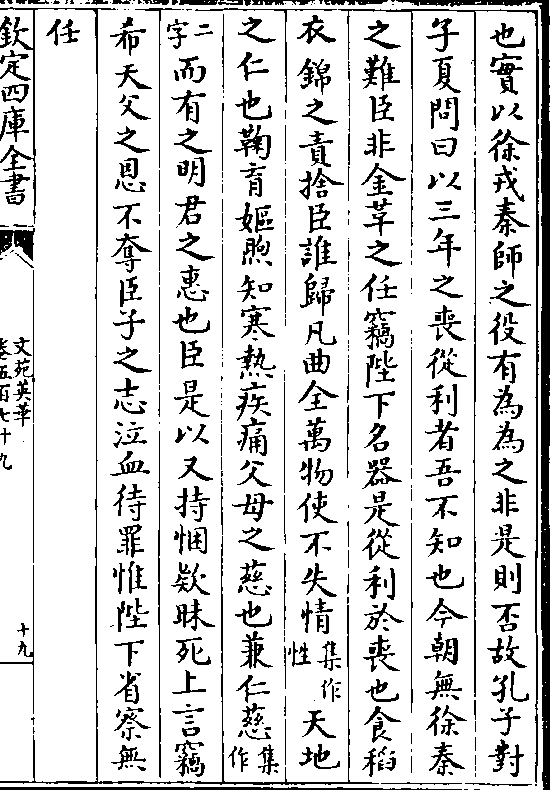 也實以徐戎秦師之役有為為之非是則否故孔子對
子夏問曰以三年之喪從利者吾不知也今朝無徐秦
之難臣非金革之任竊陛下名器是從利於喪也食稻
衣錦之責捨臣誰歸凡曲全萬物使不失情集作性天地
之仁也鞠育嫗煦知寒熱疾痛父母之慈也兼仁慈集作
二字而有之明君之惠也臣是以又持悃欵昧死上言竊
希天父之恩不奪臣子之志泣血待罪惟陛下省察無
任
欽定四庫全書
文苑英華
卷五百七十九
十九